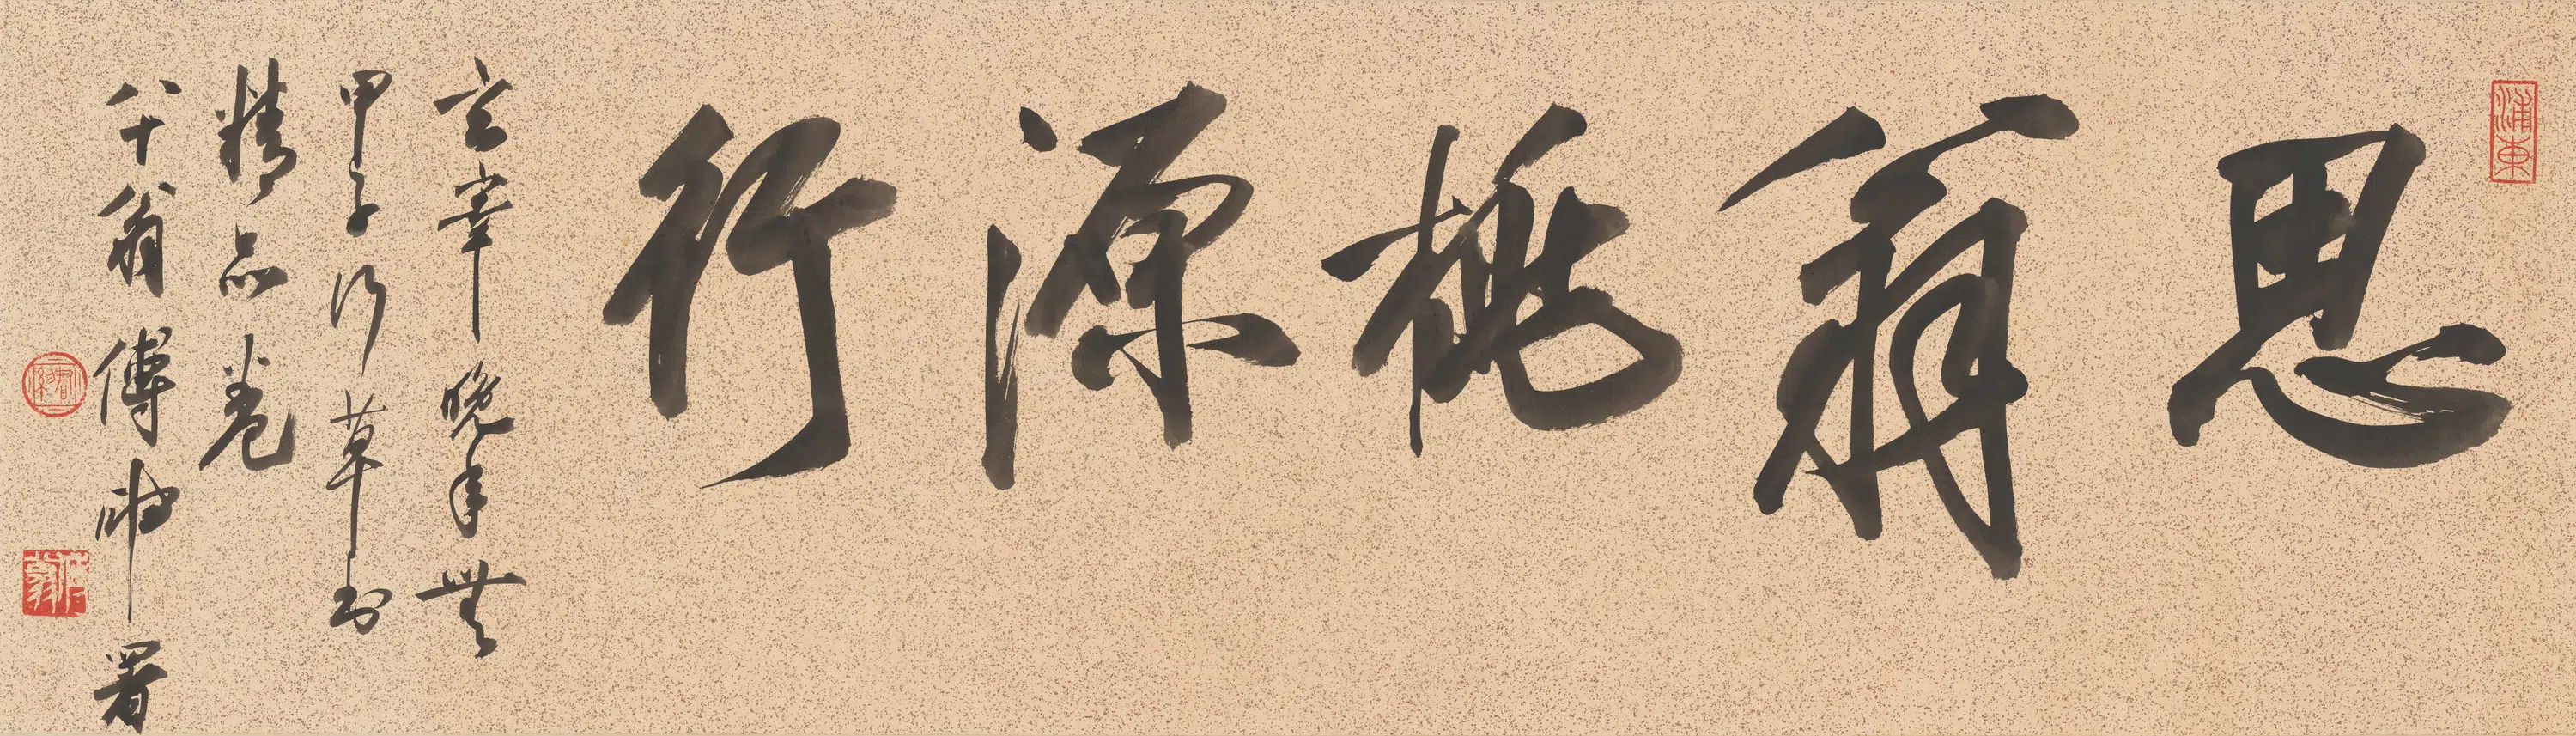 浦東
思翁桃源行
玄宰晚年無
甲子行草書
精品卷
八十翁傅申署